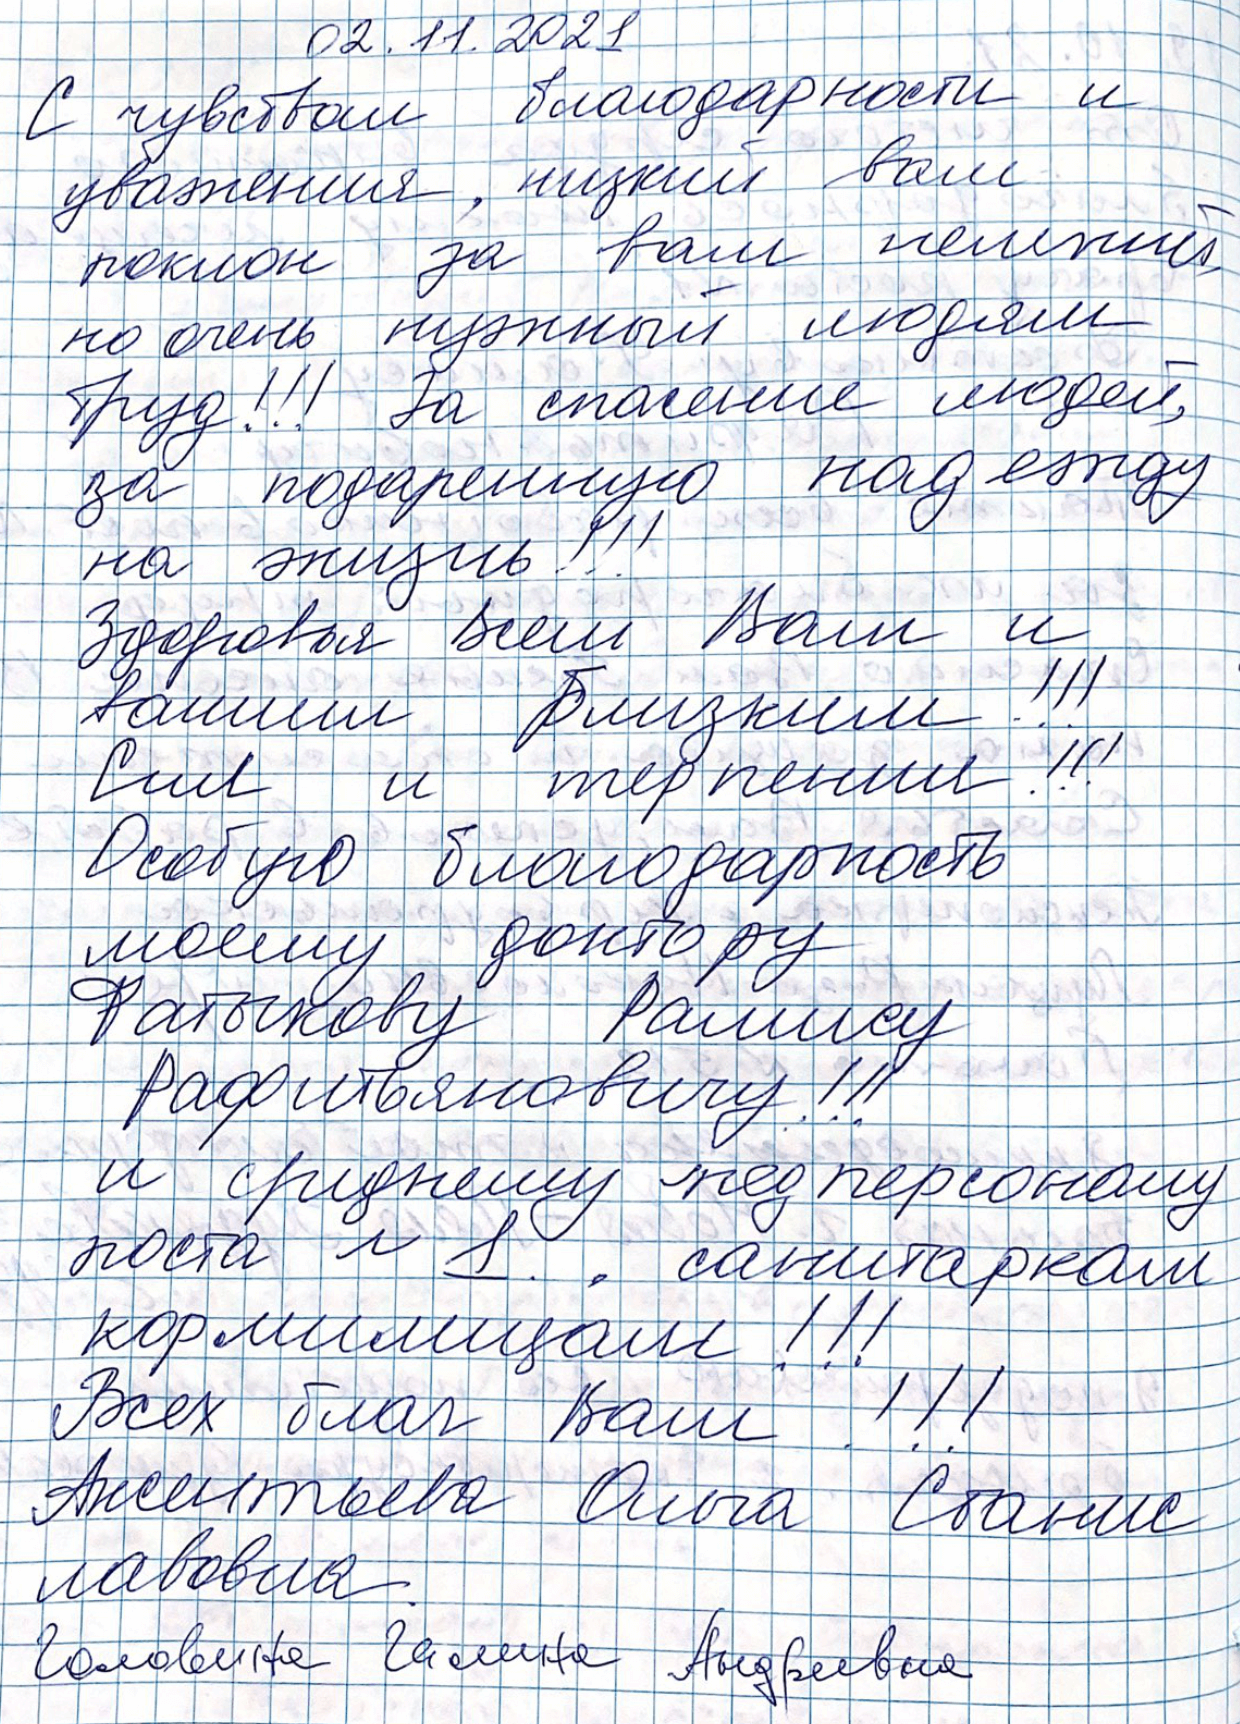 02.11.2021
С чувством благодарности и
уважения, низкий вам
поклон за ваш нелегкий,
но очень нужный людям
труд!!! За спасение людей,
за подаренную надежду
на жизнь!!!
Здоровья Всем Вам и
вашим Близким!!!
Сил и терпения!!!
Особую благодарность
моему доктору
Фатыхову Рамису
Рафитьяновичу!!!
и среднему медперсоналу
поста №1., санитаркам
кормилицам!!!
Всех благ Вам!!!
Аксентьева Ольга Станис
лавовна.
Головина Галина Андревна